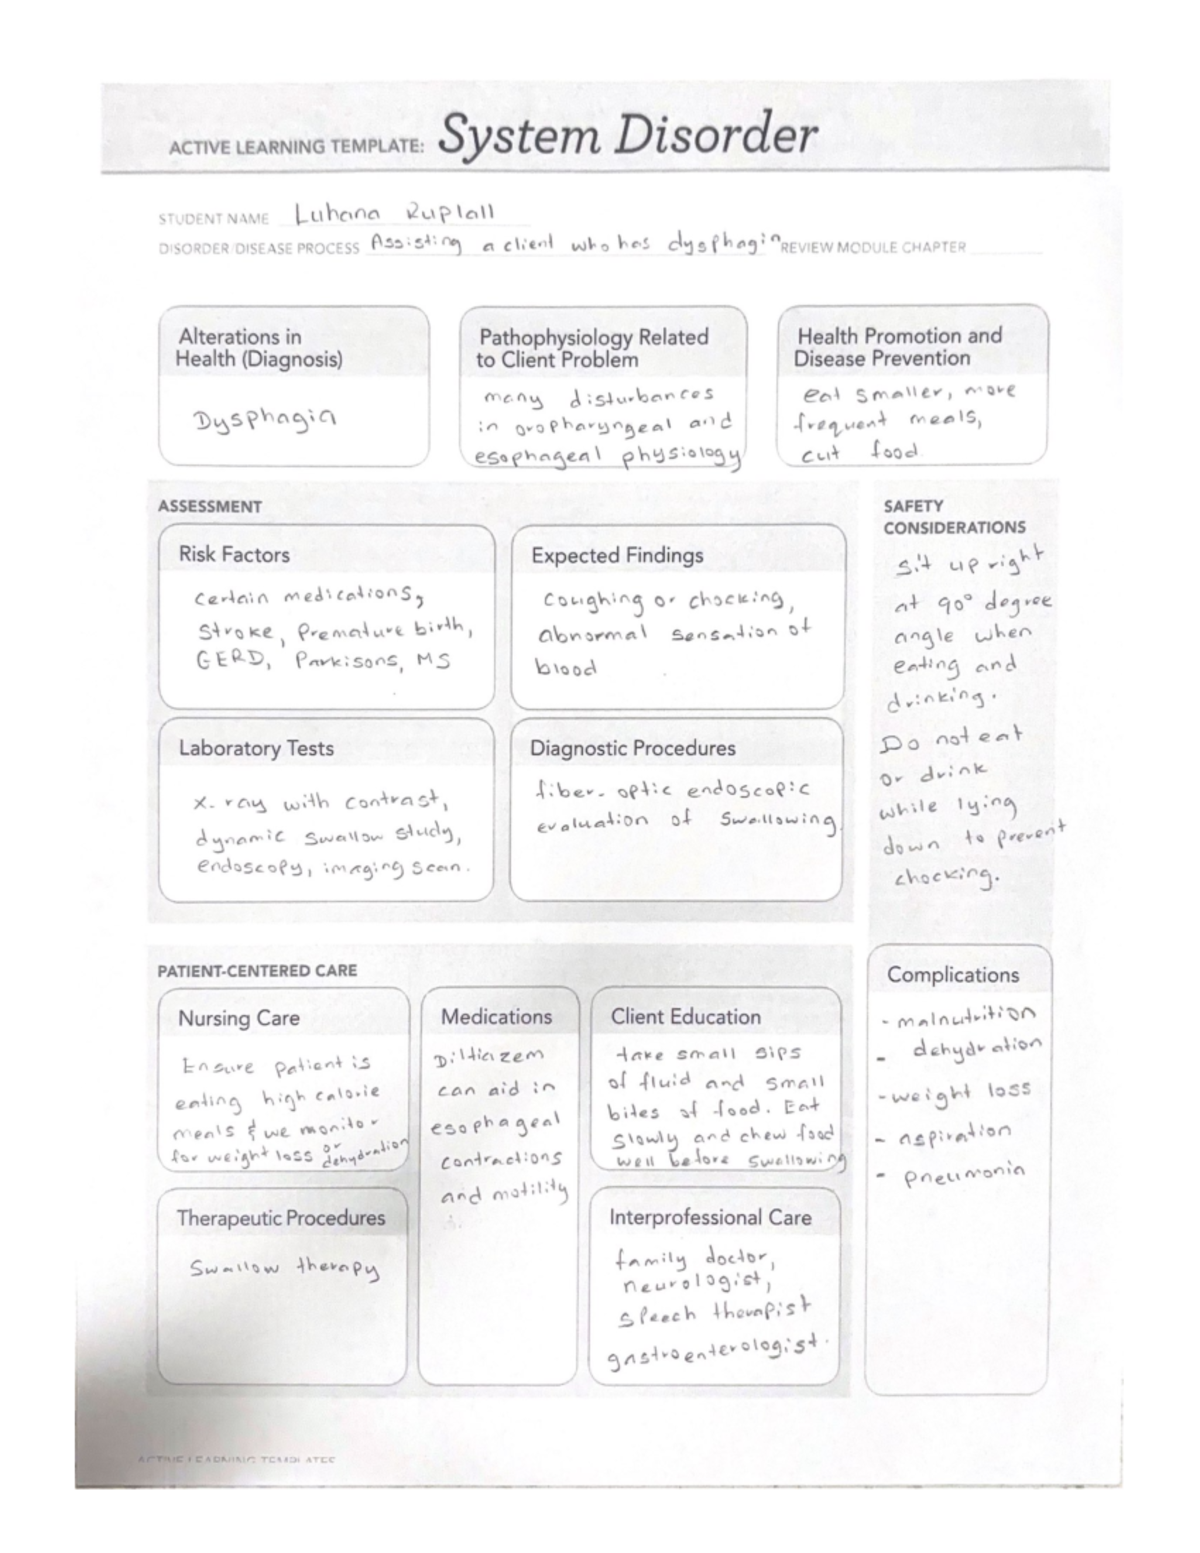 ACTIVE LEARNING TEMPLATE: System Disorder
STUDENT NAME Luhana Ruplall
DISORDER/DISEASE PROCESS Assisting a client who has dysphagia REVIEW MODULE CHAPTER
Alterations in
Health (Diagnosis)
Dysphagia
Pathophysiology Related
to Client Problem
many disturbances
in oropharyngeal and
esophageal physiology
Health Promotion and
Disease Prevention
eat smaller, more
frequent meals,
cut food
ASSESSMENT
Risk Factors
certain medications,
stroke, Premature birth,
GERD, Parkisons, MS
Expected Findings
coughing or chocking,
abnormal sensation of
blood
Laboratory Tests
x-ray with contrast,
dynamic swallow study,
endoscopy, imaging scan.
Diagnostic Procedures
fiber-optic endoscopic
evaluation of swallowing.
SAFETY
CONSIDERATIONS
sit up right
at 90° degree
angle when
eating and
drinking.
Do not eat
or drink
while lying
down to prevent
chocking.
PATIENT-CENTERED CARE
Nursing Care
Ensure patient is
eating high calorie
meals & we monitor
for weight loss or dehydration
Medications
Dilticizem
can aid in
esophageal
contractions
and motility
Client Education
take small sips
of fluid and small
bites of food. Eat
slowly and chew food
well before swallowing
Therapeutic Procedures
Swallow therapy
Interprofessional Care
family doctor,
neurologist,
speech therapist
gastroenterologist.
Complications
- malnutrition
- dehydration
- weight loss
- aspiration
- pneumonia
ACTIVE LEARNING TEMPLATES